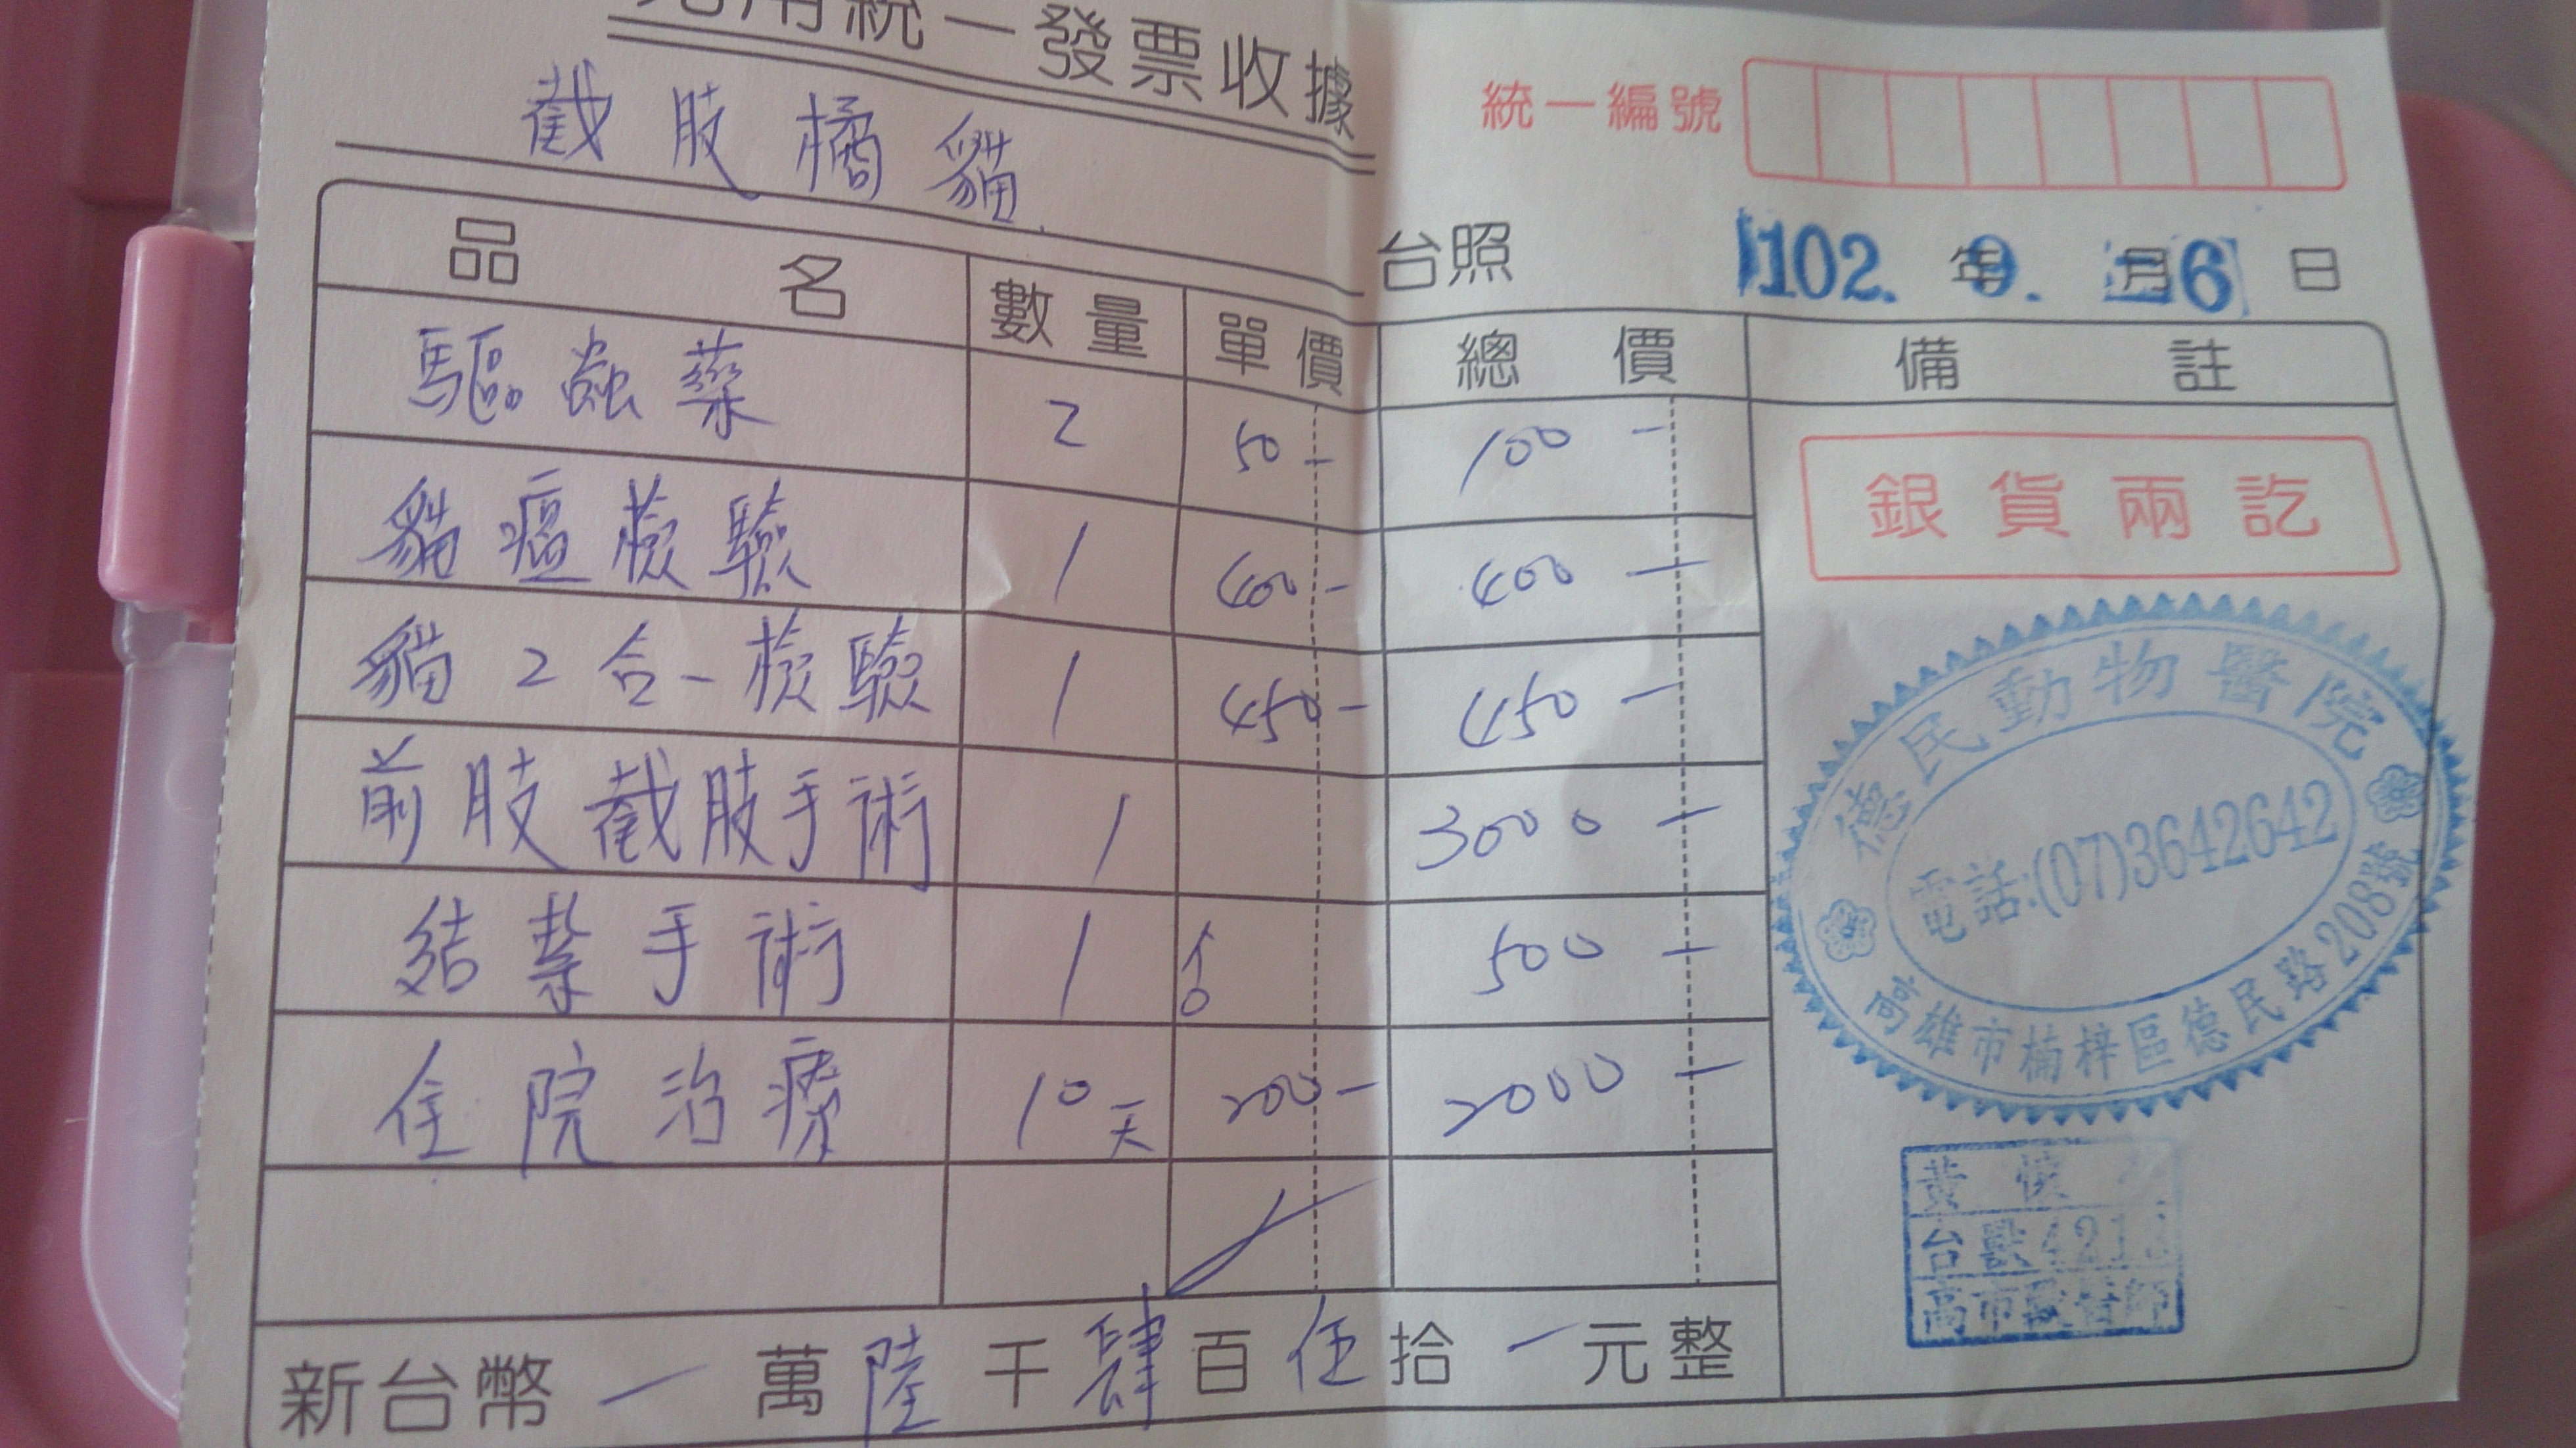 用統一發票收據
統一編號
截肢橘貓
台照
102. 年9. 月6 日
品名 數量 單價 總價 備註
驅蟲藥 2 50- 100-
貓瘟檢驗 1 400- 400-
貓2合一檢驗 1 450- 450-
前肢截肢手術 1 3000-
結紮手術 1 500-
住院治療 10天 200- 2000-
新台幣 一 萬 陸 千 肆 百 伍 拾 一 元整
銀貨兩訖
德民動物醫院
電話:(07)3642642
高雄市楠梓區德民路208號
黃
台獸421
高市獸醫師